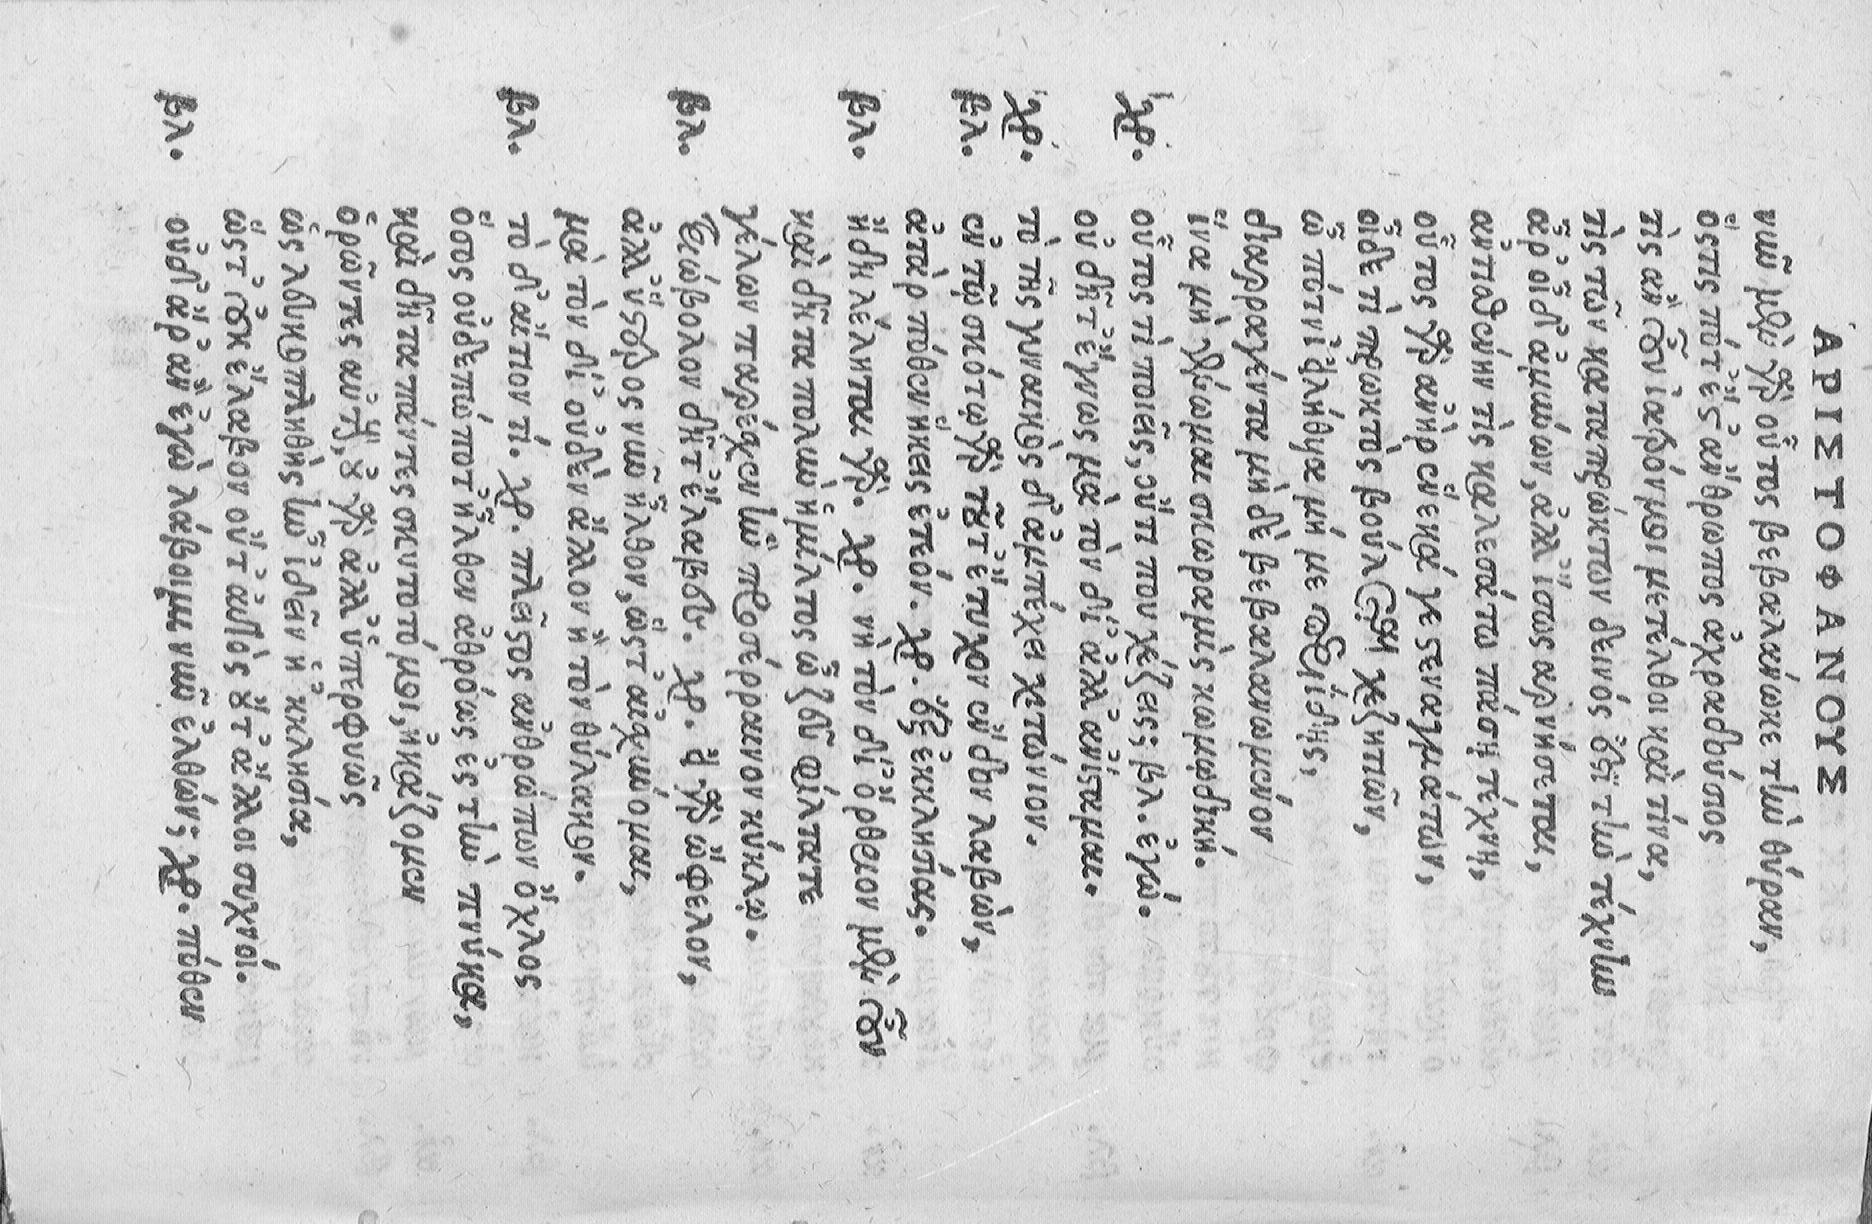 ΑΡΙΣΤΟΦΑΝΟΥΣ
νῦν μὲν γὰρ οὗτος βεβαλάνωκε τὴν θύραν,
ὅστις ποτ' ἔστ' ἄνθρωπος ἀχραδούσιος
τίς ἂν οὖν ἰατρόν μοι μετέλθοι καὶ τίνα,
τίς τῶν καταπρώκτων δεινός ἐστι τὴν τέχνην
ἆρ' οἶδ' ἀμύνων, ἀλλ' ἴσως ἀρνήσεται,
ἀντισθένην τίς καλεσάτω πάσῃ τέχνῃ,
οὗτος γὰρ ἀνὴρ ἕνεκά γε στεναγμάτων,
οἶδέ τι πρωκτὸς βούλεται χεζητιῶν,
ὦ πότνι' ἰλήθυα μή με περιίδῃς,
διαρραγέντα μὴ δὲ βεβαλανωμένον
ἵνα μὴ γένωμαι σκωραμὶς κωμῳδική.
χρ. οὗτος τί ποιεῖς, οὔτι που χέζεις; βλ. ἐγώ.
οὐ δῆτ' ἔγωγε μὰ τὸν δί' ἀλλ' ἀνίσταμαι.
χρ. τὸ τῆς γυναικὸς δ' ἀμπέχει χιτώνιον.
βλ. ἐν τῷ σκότῳ γὰρ τοῦτ' ἔτυχον ἔνδον λαβών,
ἀτὰρ πόθεν ἥκεις ἐτεόν. χρ. ἐξ ἐκκλησίας.
βλ. ἤδη λέλυται γάρ. χρ. νὴ τὸν δί' ὄρθριον μὲν οὖν
καὶ δῆτα πολὺν ἡ μίλτος ὦ ζεῦ φίλτατε
γέλων παρέσχεν ἣν προσέρραινον κύκλῳ.
βλ. τριώβολον δῆτ' ἔλαβες. χρ. εἰ γὰρ ὤφελον,
ἀλλ' ὕστερος νῦν ἦλθον, ὥστ' αἰσχύνομαι,
μὰ τὸν δί' οὐδὲν ἄλλον ἢ τὸν θύλακον.
βλ. τὸ δ' αἴτιον τί. χρ. πλεῖστος ἀνθρώπων ὄχλος
ὅσος οὐδεπώποτ' ἦλθεν ἀθρόως ἐς τὴν πνύκα,
καὶ δῆτα πάντες σκυτοτόμοι, ἠκάζομεν
ὁρῶντες αὐτούς, οὐ γὰρ ἀλλ' ὑπερφυῶς
ὡς λευκοπληθὴς ἦν ἰδεῖν ἡ 'κκλησία,
ὥστ' οὐκ ἔλαβον οὔτ' αὐτὸς οὔτ' ἄλλοι συχνοί.
βλ. οὐδ' ἄρ' ἂν ἐγὼ λάβοιμι νῦν ἐλθών; χρ. πόθεν